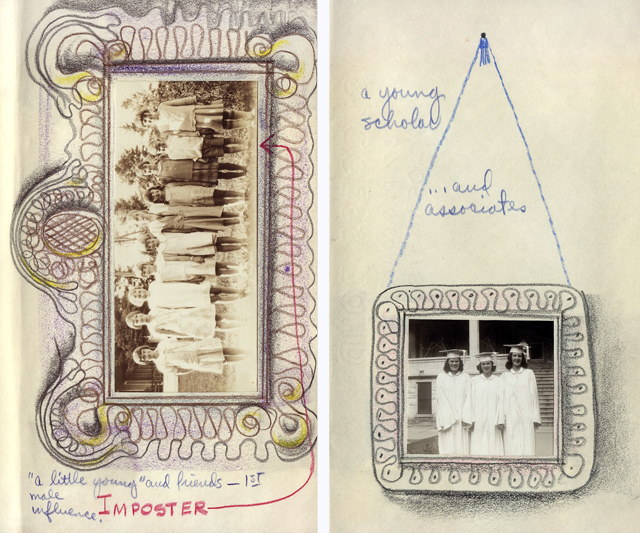 "a little young" and friends — 1ST
male
influence.
IMPOSTER
a young
scholar
...and
associates